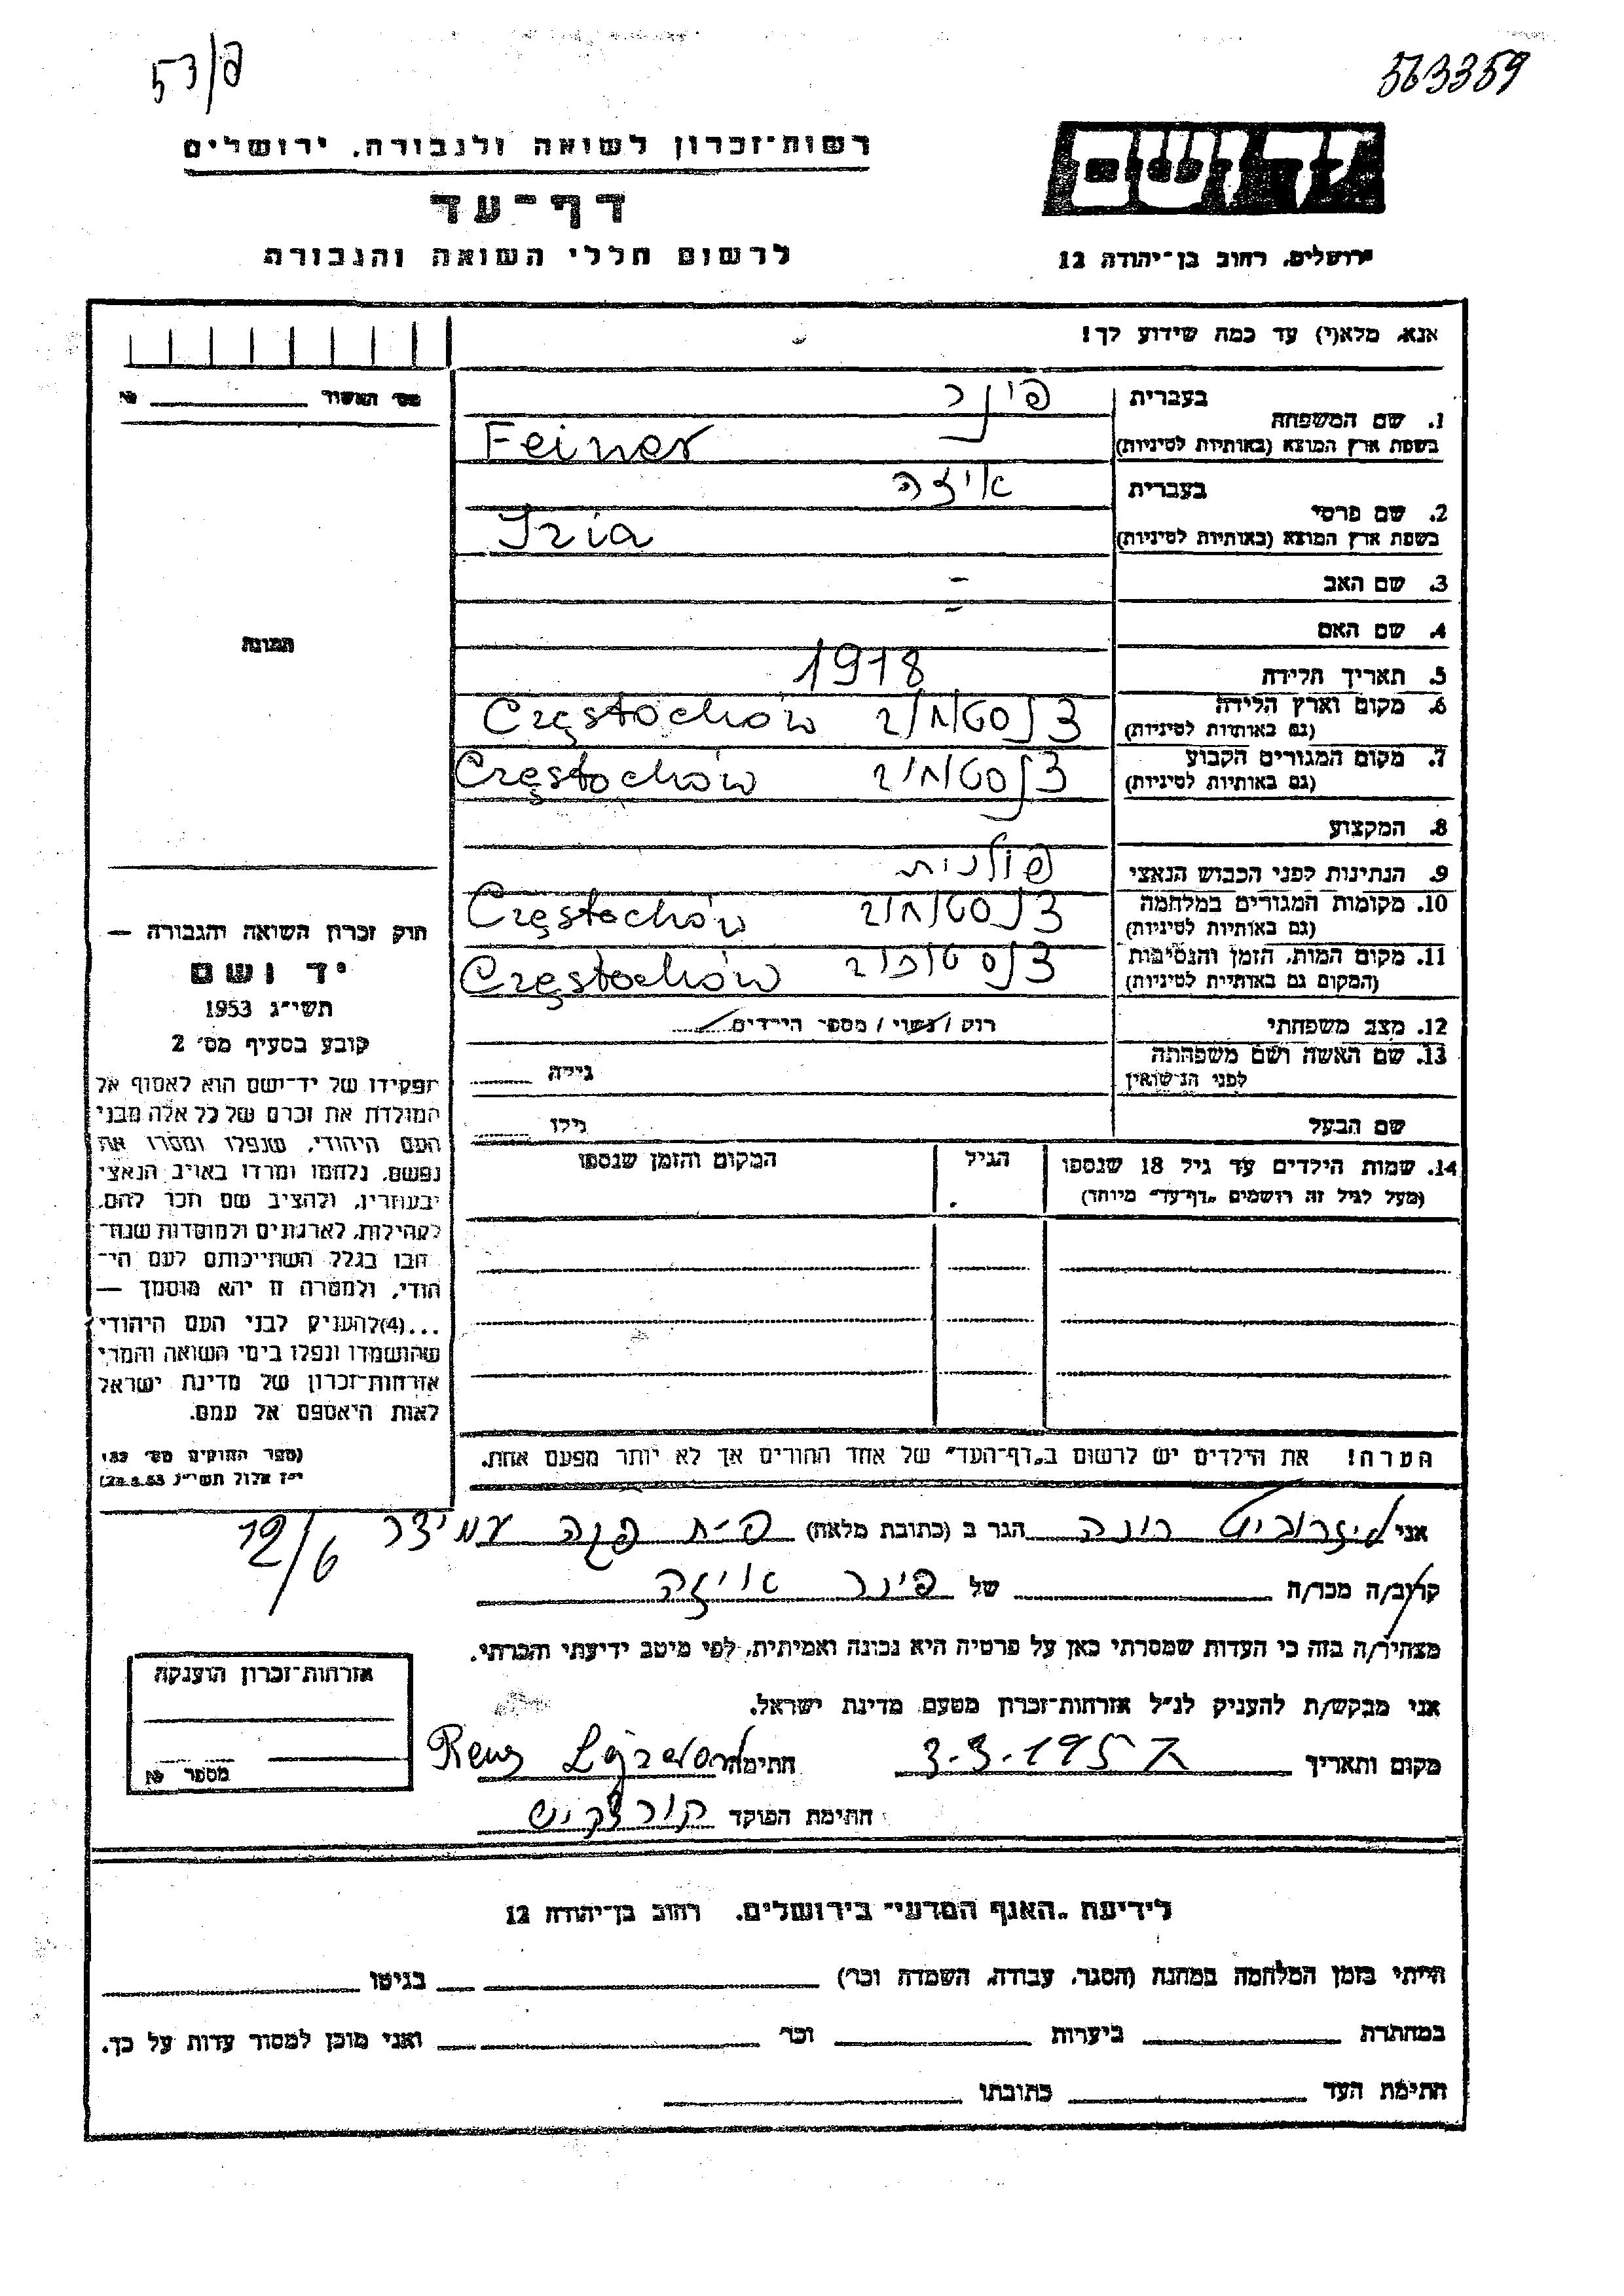 53/פ
563359
רשות־זכרון לשואה ולגבורה, ירושלים
דף־עד
לרשום חללי השואה והגבורה
יד ושם
ירושלים, רחוב בן־יהודה 12
אנא, מלא(י) עד כמה שידוע לך!
מס׳ האשור № 
תמונה
1. שם המשפחה
בעברית פינר
בשפת ארץ המוצא (באותיות לטיניות) Feiner
2. שם פרטי
בעברית איזה
בשפת ארץ המוצא (באותיות לטיניות) Izia
3. שם האב –
4. שם האם –
5. תאריך הלידה 1918
6. מקום וארץ הלידה
(גם באותיות לטיניות) Częstochów
7. מקום המגורים הקבוע
(גם באותיות לטיניות) Częstochów
8. המקצוע
9. הנתינות לפני הכבוש הנאצי פולנית
10. מקומות המגורים במלחמה
(גם באותיות לטיניות) Częstochów
11. מקום המות, הזמן והנסיבות
(המקום גם באותיות לטיניות) Częstochów
12. מצב משפחתי רוק / נשוי / מספר הילדים
13. שם האשה ושם משפחתה
לפני הנישואין גילה
שם הבעל גילו
14. שמות הילדים עד גיל 18 שנספו הגיל המקום והזמן שנספו
(מעל לגיל זה רושמים „דף־עד״ מיוחד)
חוק זכרון השואה והגבורה —
יד ושם
תשי״ג 1953
קובע בסעיף מס׳ 2
תפקידו של יד־ושם הוא לאסוף אל
המולדת את זכרם של כל אלה מבני
העם היהודי, שנפלו ומסרו את
נפשם, נלחמו ומרדו באויב הנאצי
ובעוזריו, ולהציב שם וזכר להם,
לקהילות, לארגונים ולמוסדות שנח־
רבו בגלל השתייכותם לעם הי־
הודי, ולמטרה זו יהא מוסמך —
...(4)להעניק לבני העם היהודי
שהושמדו ונפלו בימי השואה והמרי
אזרחות־זכרון של מדינת ישראל
לאות היאספם אל עמם.
(ספר החוקים מס׳ 132
י״ז אלול תשי״ג 28.8.53)
הערה! את הילדים יש לרשום ב„דף־העד״ של אחד ההורים אך לא יותר מפעם אחת.
אני הגר ב (כתובת מלאה) עמידר 12/6
קרוב/ה מכר/ה של פינר איזה
מצהיר/ה בזה כי העדות שמסרתי כאן על פרטיה היא נכונה ואמיתית, לפי מיטב ידיעתי והכרתי.
אני מבקש/ת להעניק לנ״ל אזרחות־זכרון מטעם מדינת ישראל.
מקום ותאריך 3.3.1957 חתימה
חתימת הפוקד
אזרחות־זכרון הוענקה
מספר №
לידיעת „האגף המדעי״ בירושלים, רחוב בן־יהודה 12
הייתי בזמן המלחמה במחנה (הסגר, עבודה, השמדה וכו׳) בגיטו
במחתרת ביערות וכו׳ ואני מוכן למסור עדות על כך.
חתימת העד כתובתו